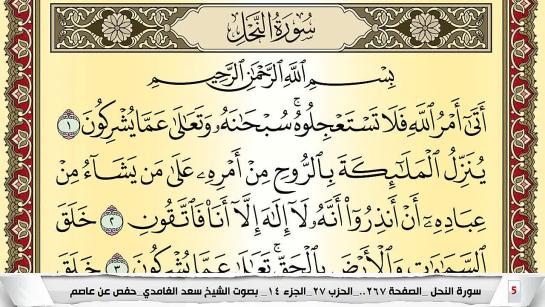 سُورَةُ النَّحْلِ
بِسْمِ اللَّهِ الرَّحْمَٰنِ الرَّحِيمِ
أَتَىٰٓ أَمْرُ اللَّهِ فَلَا تَسْتَعْجِلُوهُ ۚ سُبْحَٰنَهُۥ وَتَعَٰلَىٰ عَمَّا يُشْرِكُونَ ١
يُنَزِّلُ الْمَلَٰٓئِكَةَ بِالرُّوحِ مِنْ أَمْرِهِۦ عَلَىٰ مَن يَشَآءُ مِنْ
عِبَادِهِۦٓ أَنْ أَنذِرُوٓا۟ أَنَّهُۥ لَآ إِلَٰهَ إِلَّآ أَنَا۠ فَاتَّقُونِ ٢ خَلَقَ
السَّمَٰوَٰتِ وَالْأَرْضَ بِالْحَقِّ ۚ تَعَٰلَىٰ عَمَّا يُشْرِكُونَ ٣ خَلَقَ
5 سورة النحل _الصفحة ٢٦٧.._الحزب ٢٧ _الجزء ١٤ _ بصوت الشيخ سعد الغامدي_حفص عن عاصم